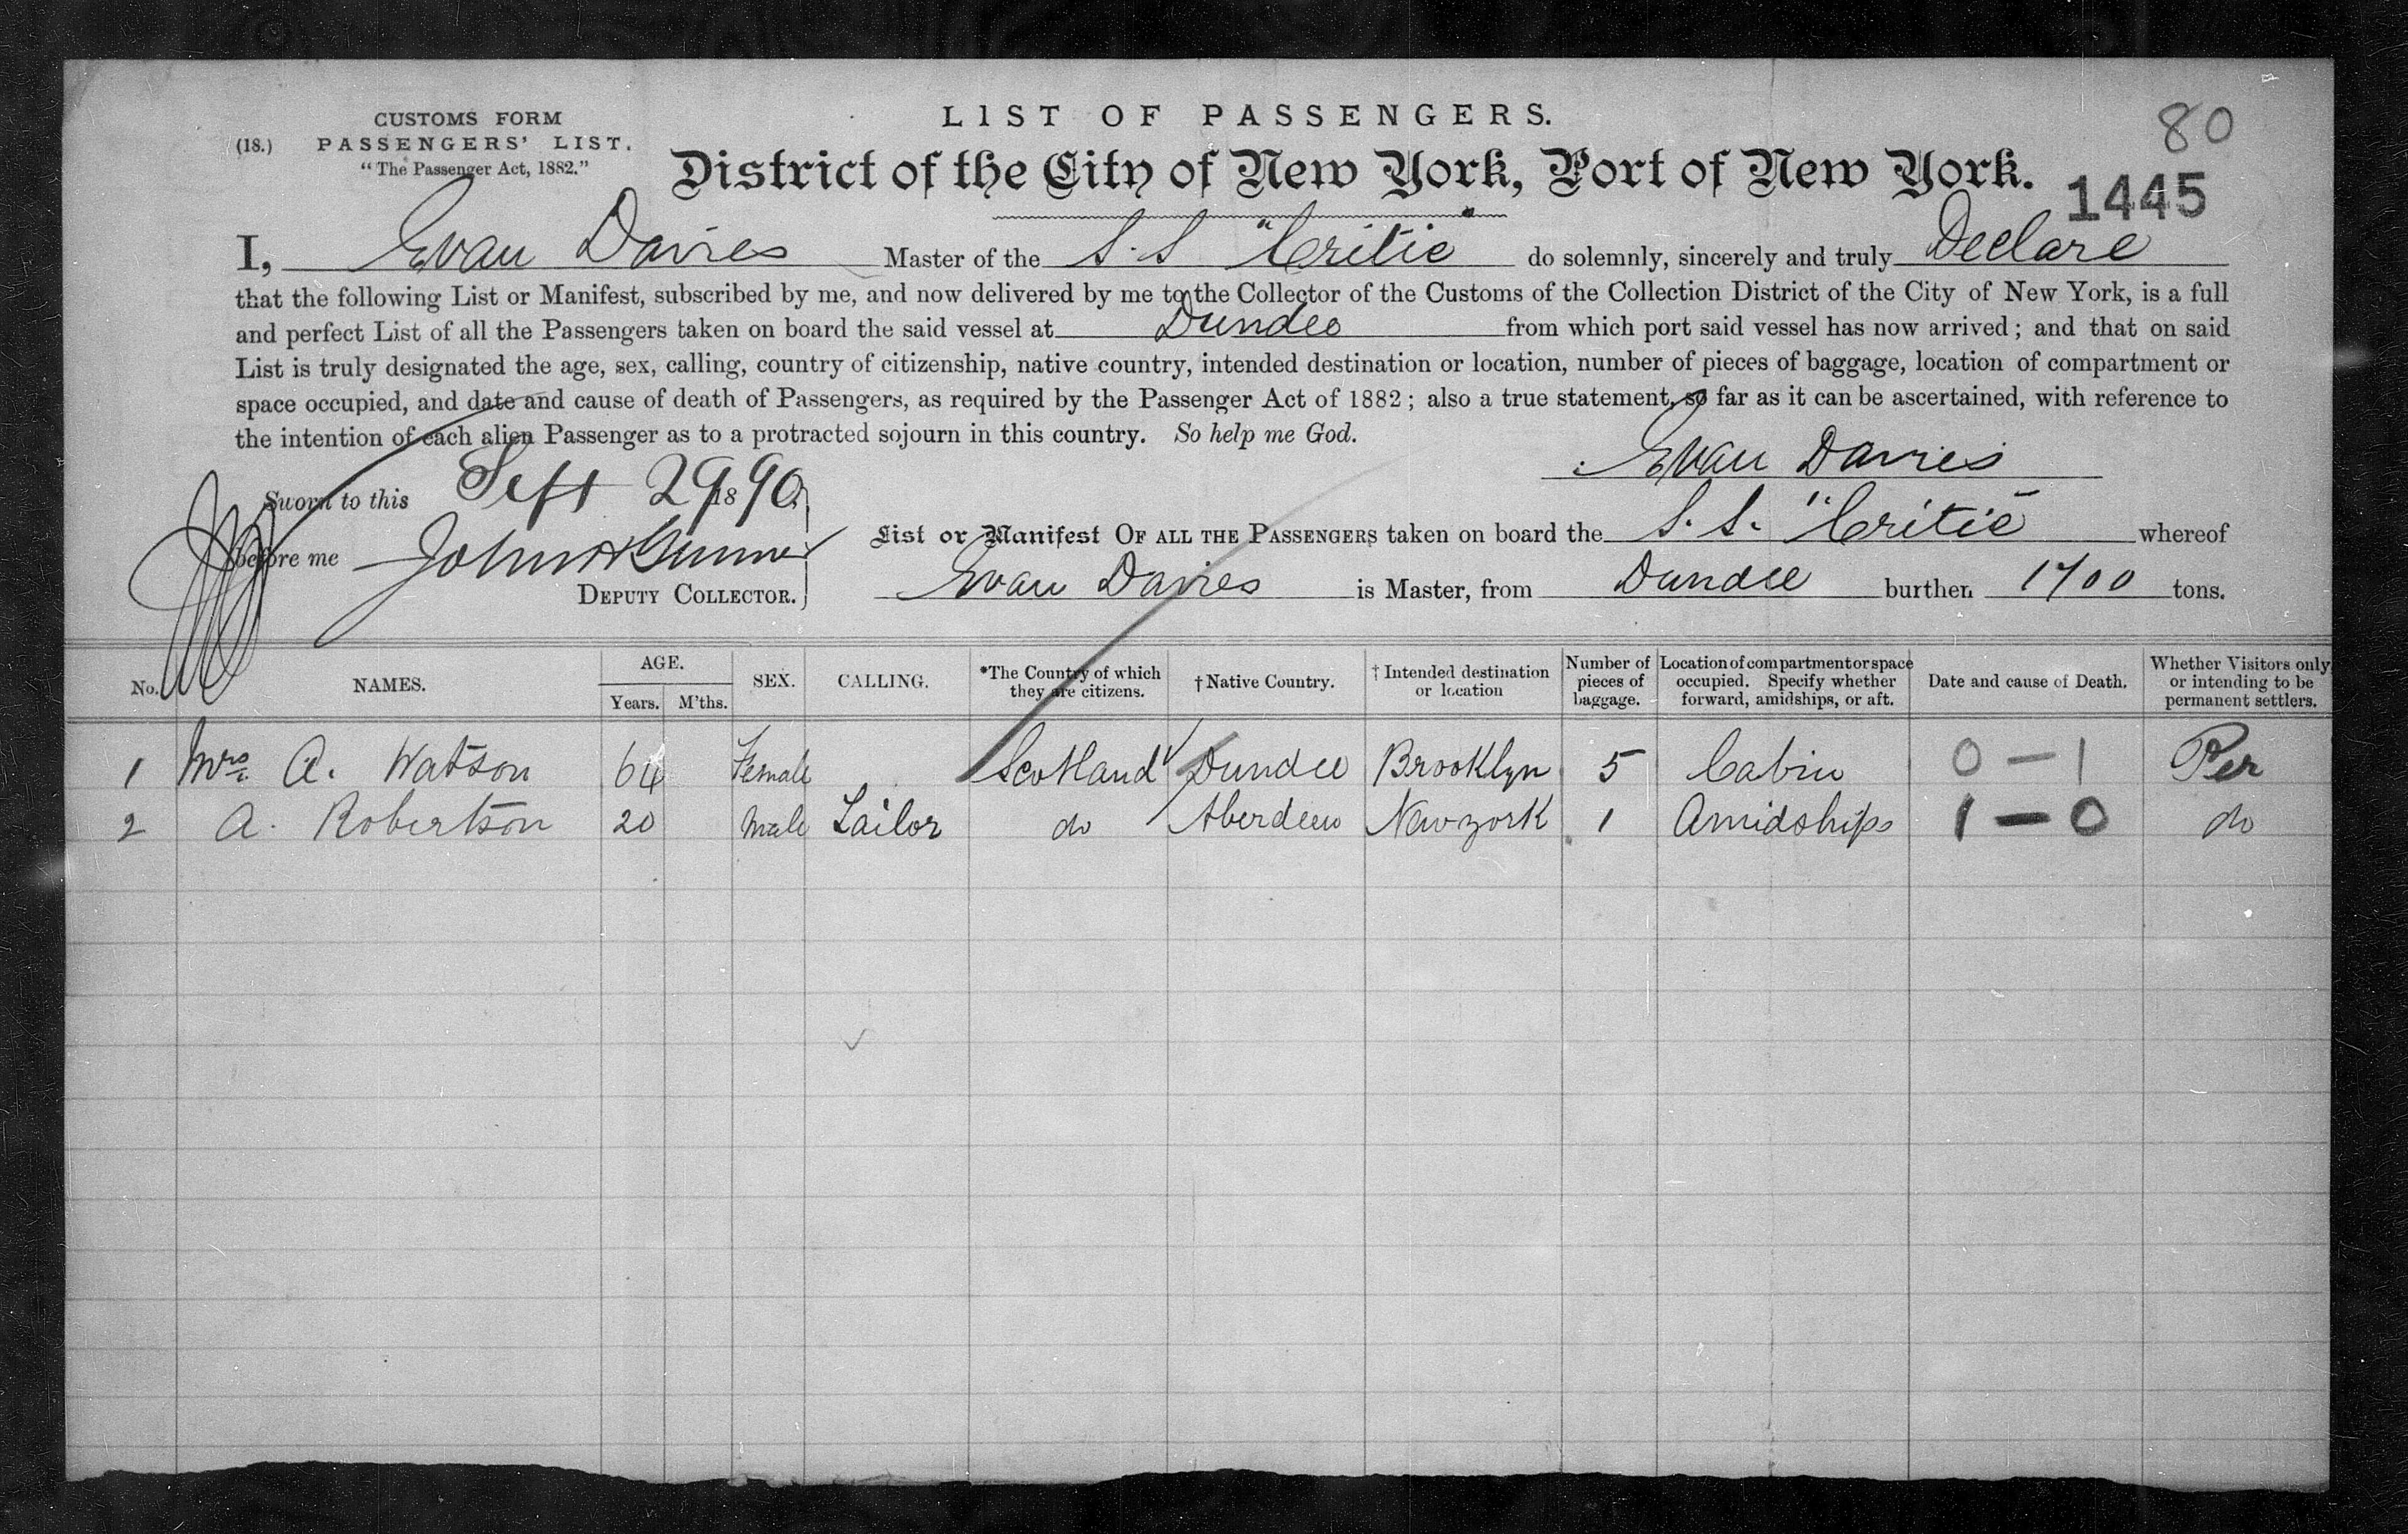 80
CUSTOMS FORM
(18.) PASSENGERS' LIST.
"The Passenger Act, 1882."
LIST OF PASSENGERS.
District of the City of New York, Port of New York.
1445
I, Evan Davies Master of the S.S "Critic" do solemnly, sincerely and truly Declare
that the following List or Manifest, subscribed by me, and now delivered by me to the Collector of the Customs of the Collection District of the City of New York, is a full
and perfect List of all the Passengers taken on board the said vessel at Dundee from which port said vessel has now arrived; and that on said
List is truly designated the age, sex, calling, country of citizenship, native country, intended destination or location, number of pieces of baggage, location of compartment or
space occupied, and date and cause of death of Passengers, as required by the Passenger Act of 1882; also a true statement, so far as it can be ascertained, with reference to
the intention of each alien Passenger as to a protracted sojourn in this country. So help me God.
Evan Davies
Sworn to this Sept 29 1890
before me John
DEPUTY COLLECTOR.
List or Manifest OF ALL THE PASSENGERS taken on board the S.S. "Critic" whereof
Evan Davies is Master, from Dundee burthen 1700 tons.
No. NAMES. AGE. Years. M'ths. SEX. CALLING. *The Country of which they are citizens. †Native Country. †Intended destination or location Number of pieces of baggage. Location of compartment or space occupied. Specify whether forward, amidships, or aft. Date and cause of Death. Whether Visitors only or intending to be permanent settlers.
1 Mrs. A. Watson 64 Female Scotland Dundee Brooklyn 5 Cabin 0 — 1 Per
2 A. Robertson 20 Male Tailor do Aberdeen New york 1 Amidships 1 — 0 do